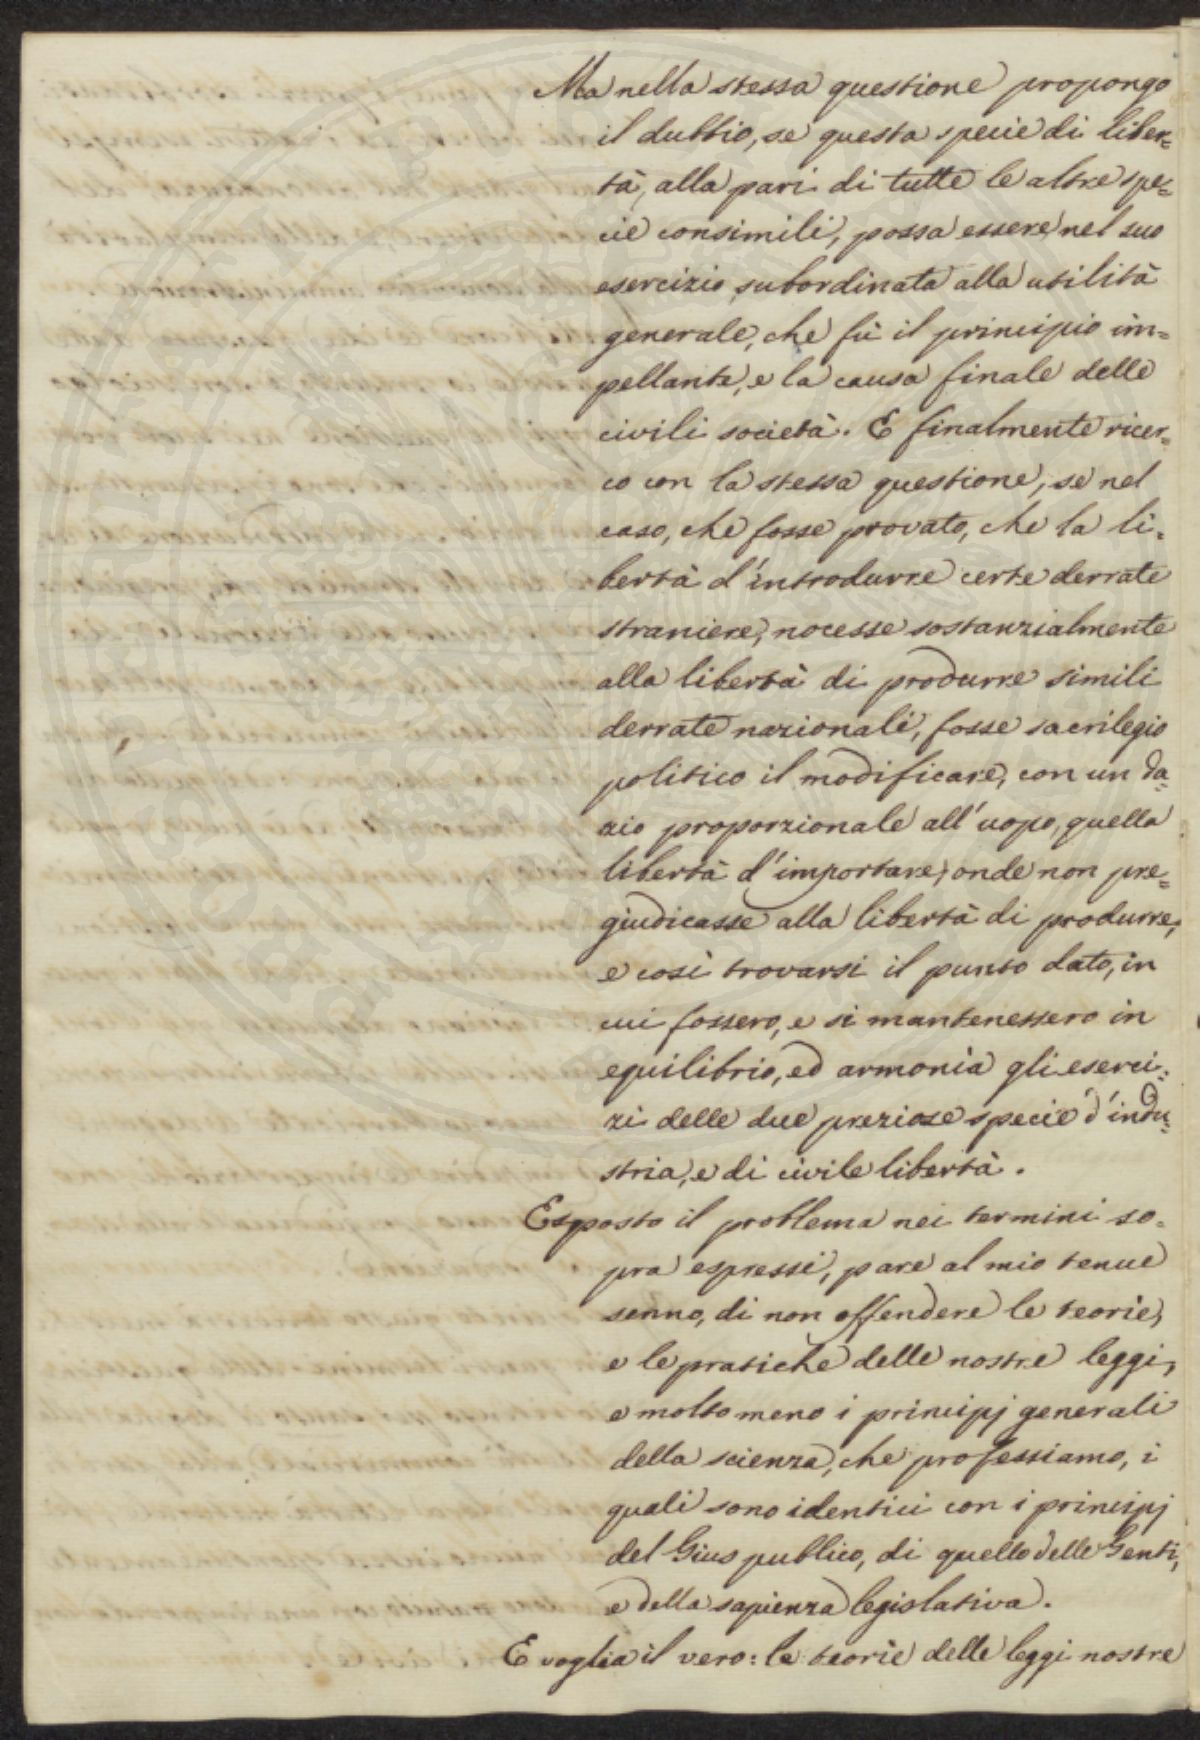 Ma nella stessa questione propongo
il dubbio, se questa specie di liber=
tà, alla pari di tutte le altre spe=
cie consimili, possa essere nel suo
esercizio subordinata alla utilità
generale, che fù il principio im=
pellante, e la causa finale delle
civili società. E finalmente ricer=
co con la stessa questione, se nel
caso, che fosse provato, che la li=
bertà d'introdurre certe derrate
straniere, nocesse sostanzialmente
alla libertà di produrre simili
derrate nazionali, fosse sacrilegio
politico il modificare, con un da=
zio proporzionale all'uopo, quella
libertà d'importare, onde non pre=
giudicasse alla libertà di produrre,
e così trovarsi il punto dato, in
cui fossero, e si mantenessero in
equilibrio, ed armonia gli eserci=
zi delle due preziose specie d'indu=
stria, e di civile libertà.
Esposto il problema nei termini so=
pra espressi, pare al mio tenue
senno, di non offendere le teorie,
e le pratiche delle nostre leggi,
e molto meno i principj generali
della scienza, che professiamo, i
quali sono identici con i principj
del Gius publico, di quello delle Genti,
e della sapienza legislativa.
E voglia il vero: le teorie delle leggi nostre